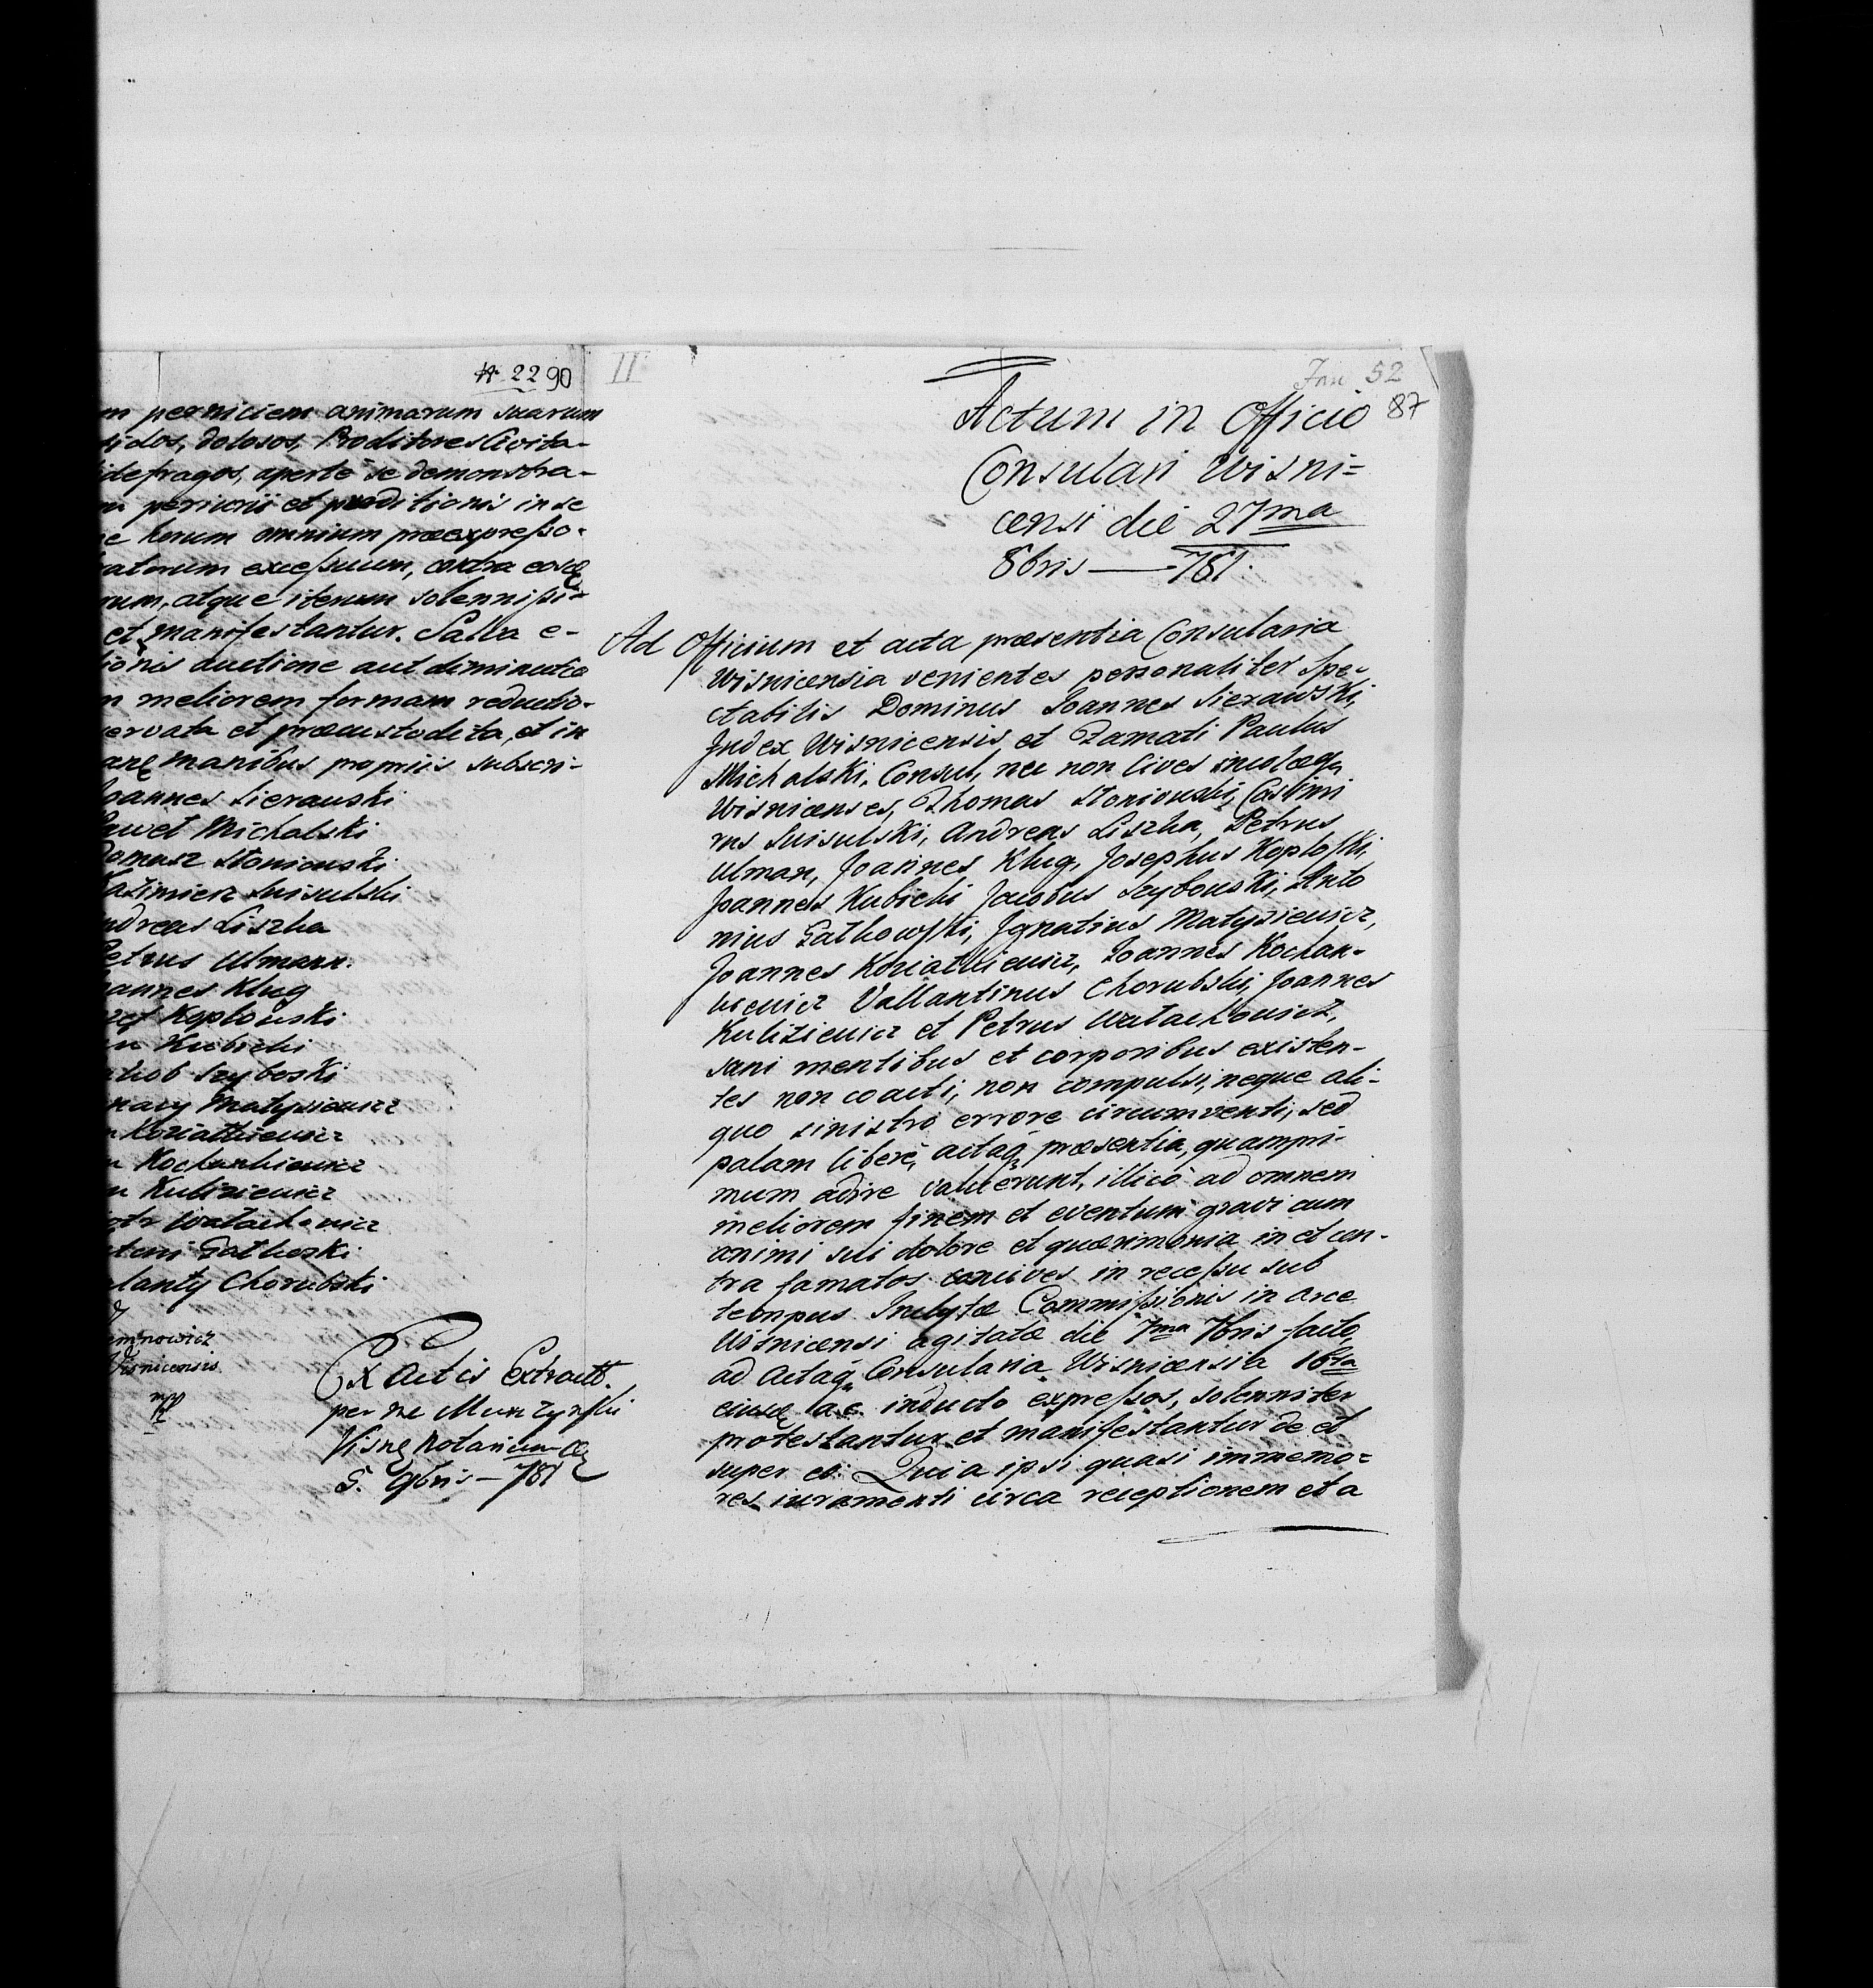 # 22 90
m perniciem animarum suarum
sidos, dolosos, Proditores Civita-
idefragos, aperte se demonstra-
m periurii et proditionis in se
e horum omnium præexpresso-
catorum excessuum, contra eosd
rum, atque iterum solennissi-
et manifestantur. Salva e-
ionis auctione aut diminutio
n meliorem formam reductio-
servata et præcustodita, et in
manibus propriis subscri-
oannes Sierawski
awet Michalski
omasz Stoniowski
azimierz Swisulski
ndreas Liszka
Petrus Ulmann.
oannes Klug
zef Koplowski
n Kubicki
akob Szyboski
nacy Matysiewicz
n Koziatkiewicz
n Kochankiewicz
n Kuliziewicz
otr Watachowicz
toni Gatkoski
alanty Chorubski
emnowicz
Visnicensis
mp
Ex Actis Extractt.
per me Murzynski
Visn Notarium
5. 9bris — 781
II
52
87
Actum in Officio
Consulari Wisni=
censi die 27ma
8bris — 781.
Ad Officium et acta præsentia Consularia
Wisnicensia venientes personaliter Spe-
ctabilis Dominus Joannes Sierawski,
Judex Wisnicensis et Famati Paulus
Michalski, Consul, nec non Cives incolæq
Wisnicenses, Thomas Stoniowski, Casimi
rus Swisulski, Andreas Liszka, Petrus
Ulman, Joannes Klug, Josephus Koplofski,
Joannes Kubicki Jacobus Szybowski, Anto
nius Gatkowski, Ignatius Matysiewicz,
Joannes Koziatkiewicz, Joannes Kochan-
kiewicz Vallantinus Chorubski, Joannes
Kuliziewicz et Petrus Watachowicz,
sani mentibus et corporibus existen-
tes non coacti, non compulsi, neque ali-
quo sinistro errore circumventi, sed
palam libere, actaq præsentia, quampri-
mum adire valuerunt, illico ad omnem
meliorem finem et eventum gravi cum
animi sui dolore et quærimonia in et con-
tra famatos concives in recessu sub
tempus Inclytæ Commissionis in arce
Wisnicensi agitatæ die 7ma 7bris facto,
ad actaq Consularia Wisnicensia 16ta
eiusd a. c. inducto expressos, solenniter
protestantur et manifestantur de et
super eo: Quia ipsi quasi immemo=
res iuramenti circa receptionem et a